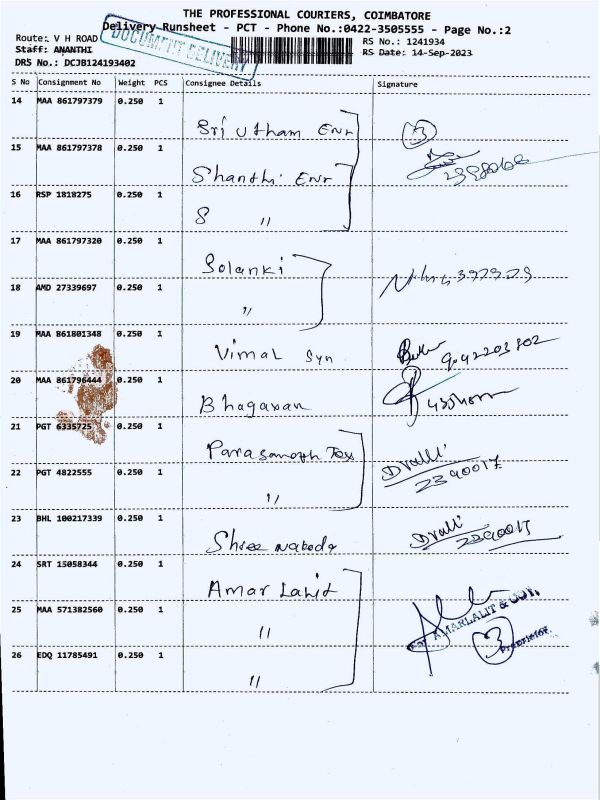 THE PROFESSIONAL COURIERS, COIMBATORE
Delivery Runsheet - PCT - Phone No.:0422-3505555 - Page No.:2
Route: V H ROAD
DOCUMENT DELIVERY
RS No.: 1241934
Staff: ANANTHI
RS Date: 14-Sep-2023
DRS No.: DCJB124193402
S No Consignment No Weight PCS Consignee Details Signature
14 MAA 861797379 0.250 1
Sri Utham Enr 3
15 MAA 861797378 0.250 1
Shanthi Enr
16 RSP 1818275 0.250 1
8 "
17 MAA 861797320 0.250 1
Solanki
18 AMD 27339697 0.250 1
"
19 MAA 861801348 0.250 1
Vimal Syn
20 MAA 861796444 0.250 1
Bhagavan
21 PGT 6335725 0.250 1
22 PGT 4822555 0.250 1
"
23 BHL 100217339 0.250 1
Shree
24 SRT 15058344 0.250 1
Amar
25 MAA 571382560 0.250 1
"
AMARLALIT & CO
26 EDQ 11785491 0.250 1
3
Proprietor
"